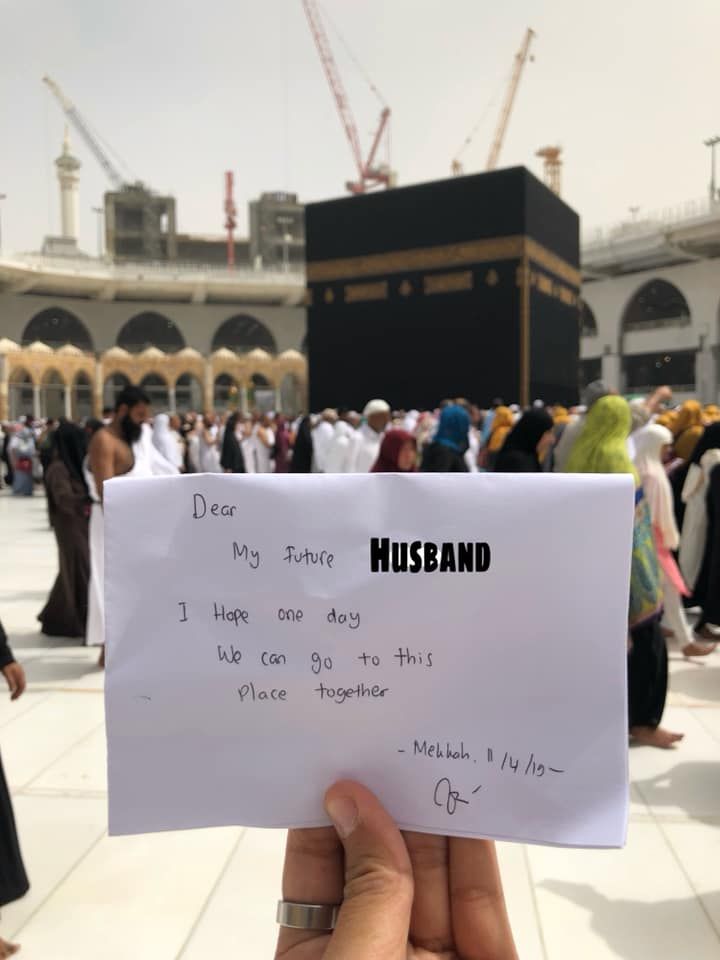 Dear
My future HUSBAND
I Hope one day
We can go to this
Place together
- Mekkah, 11/4/19 -